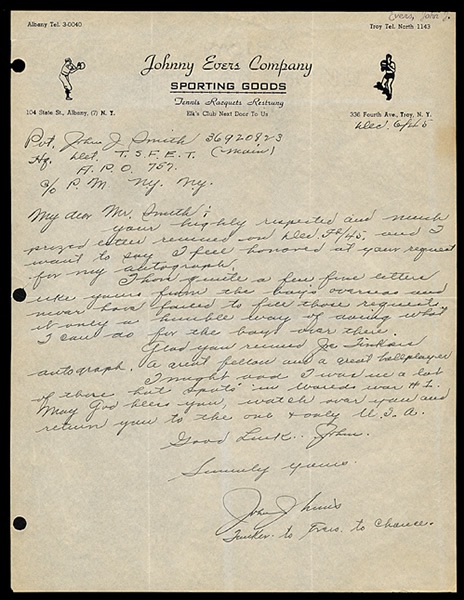 Evers, John J.
Albany Tel. 3-0040
Troy Tel. North 1143
Johnny Evers Company
SPORTING GOODS
Tennis Racquets Restrung
Elk's Club Next Door To Us
104 State St., Albany, (7) N. Y.
336 Fourth Ave., Troy, N. Y.
Dec. 6/45
Pvt. John J Smith 36920823
Hq. Det. T. S. F. E. T. (Main)
A. P. O. 757.
c/o P. M. Ny. Ny.
My dear Mr. Smith;
your highly respected and much
prized letter received on Dec. and I
want to say I feel honored at your request
for my autograph.
I have quite a few fine letters
like yours from the boys overseas and
never have failed to fill those request
it only a humble way of doing what
I can do for the boys over there.
Glad you received Joe Tinkers
autograph. A great fellow and a great ballplayer
I might add I was in a lot
of those hot spots in World war #1.
May God bless you, watch over you and
return you to the one & only U. S. A.
Good Luck. John.
Sincerely yours.
John J Evers
Tinker. to Evers. to Chance.